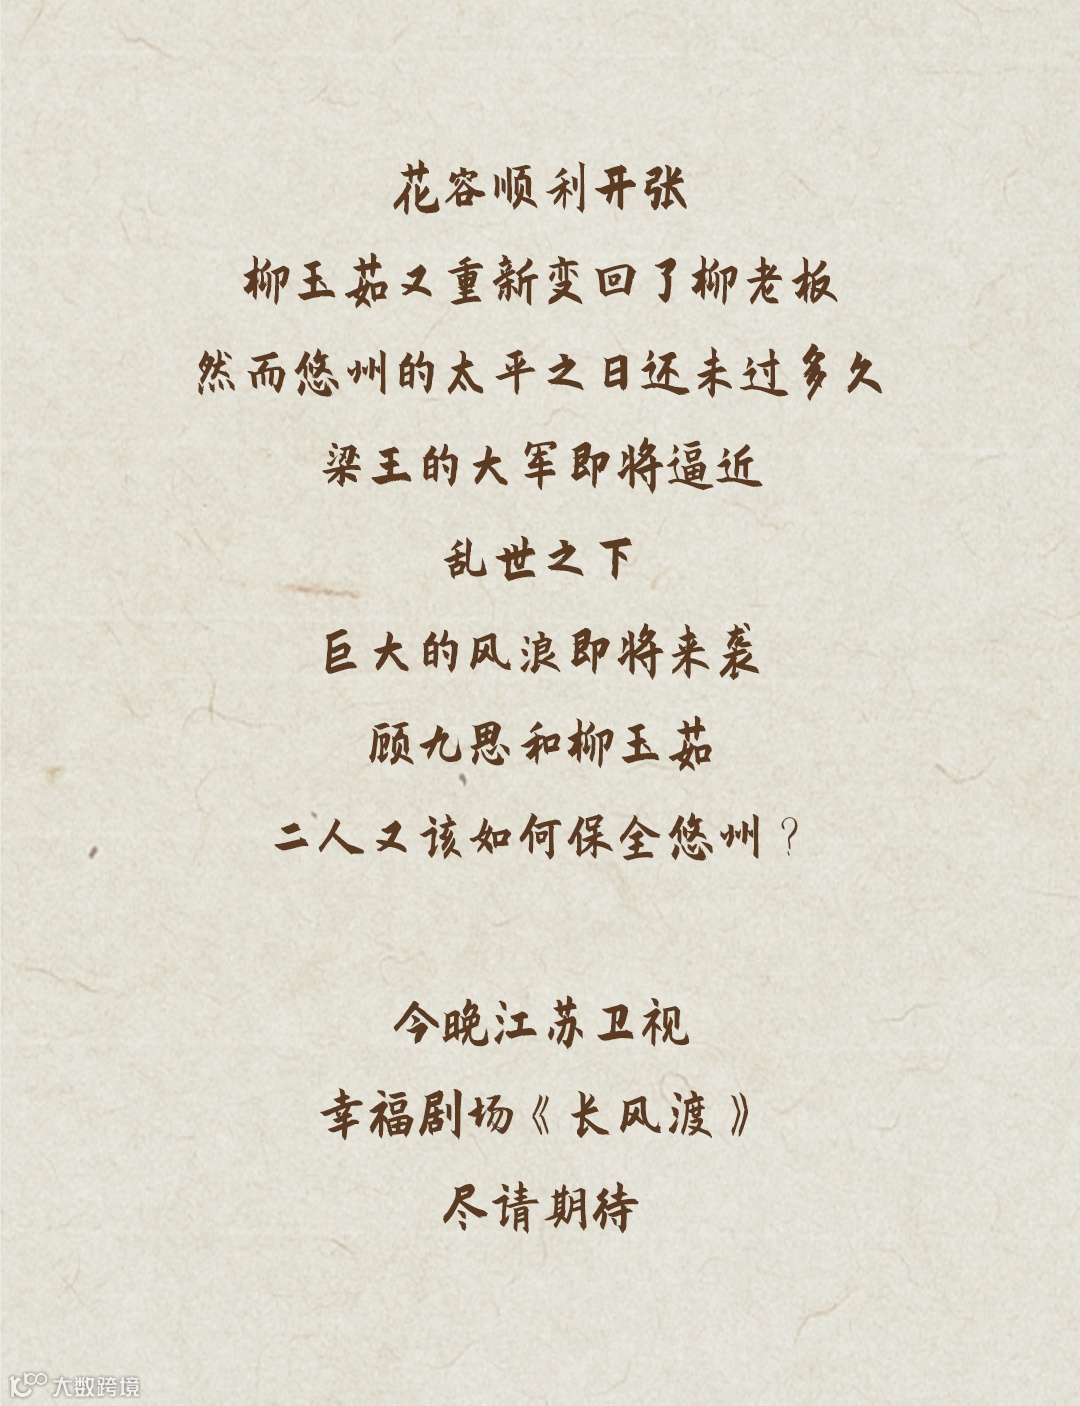 花容顺利开张
柳玉茹又重新变回了柳老板
然而悠州的太平之日还未过多久
梁王的大军即将逼近
乱世之下
巨大的风浪即将来袭
顾九思和柳玉茹
二人又该如何保全悠州？
今晚江苏卫视
幸福剧场《长风渡》
尽请期待
大数跨境